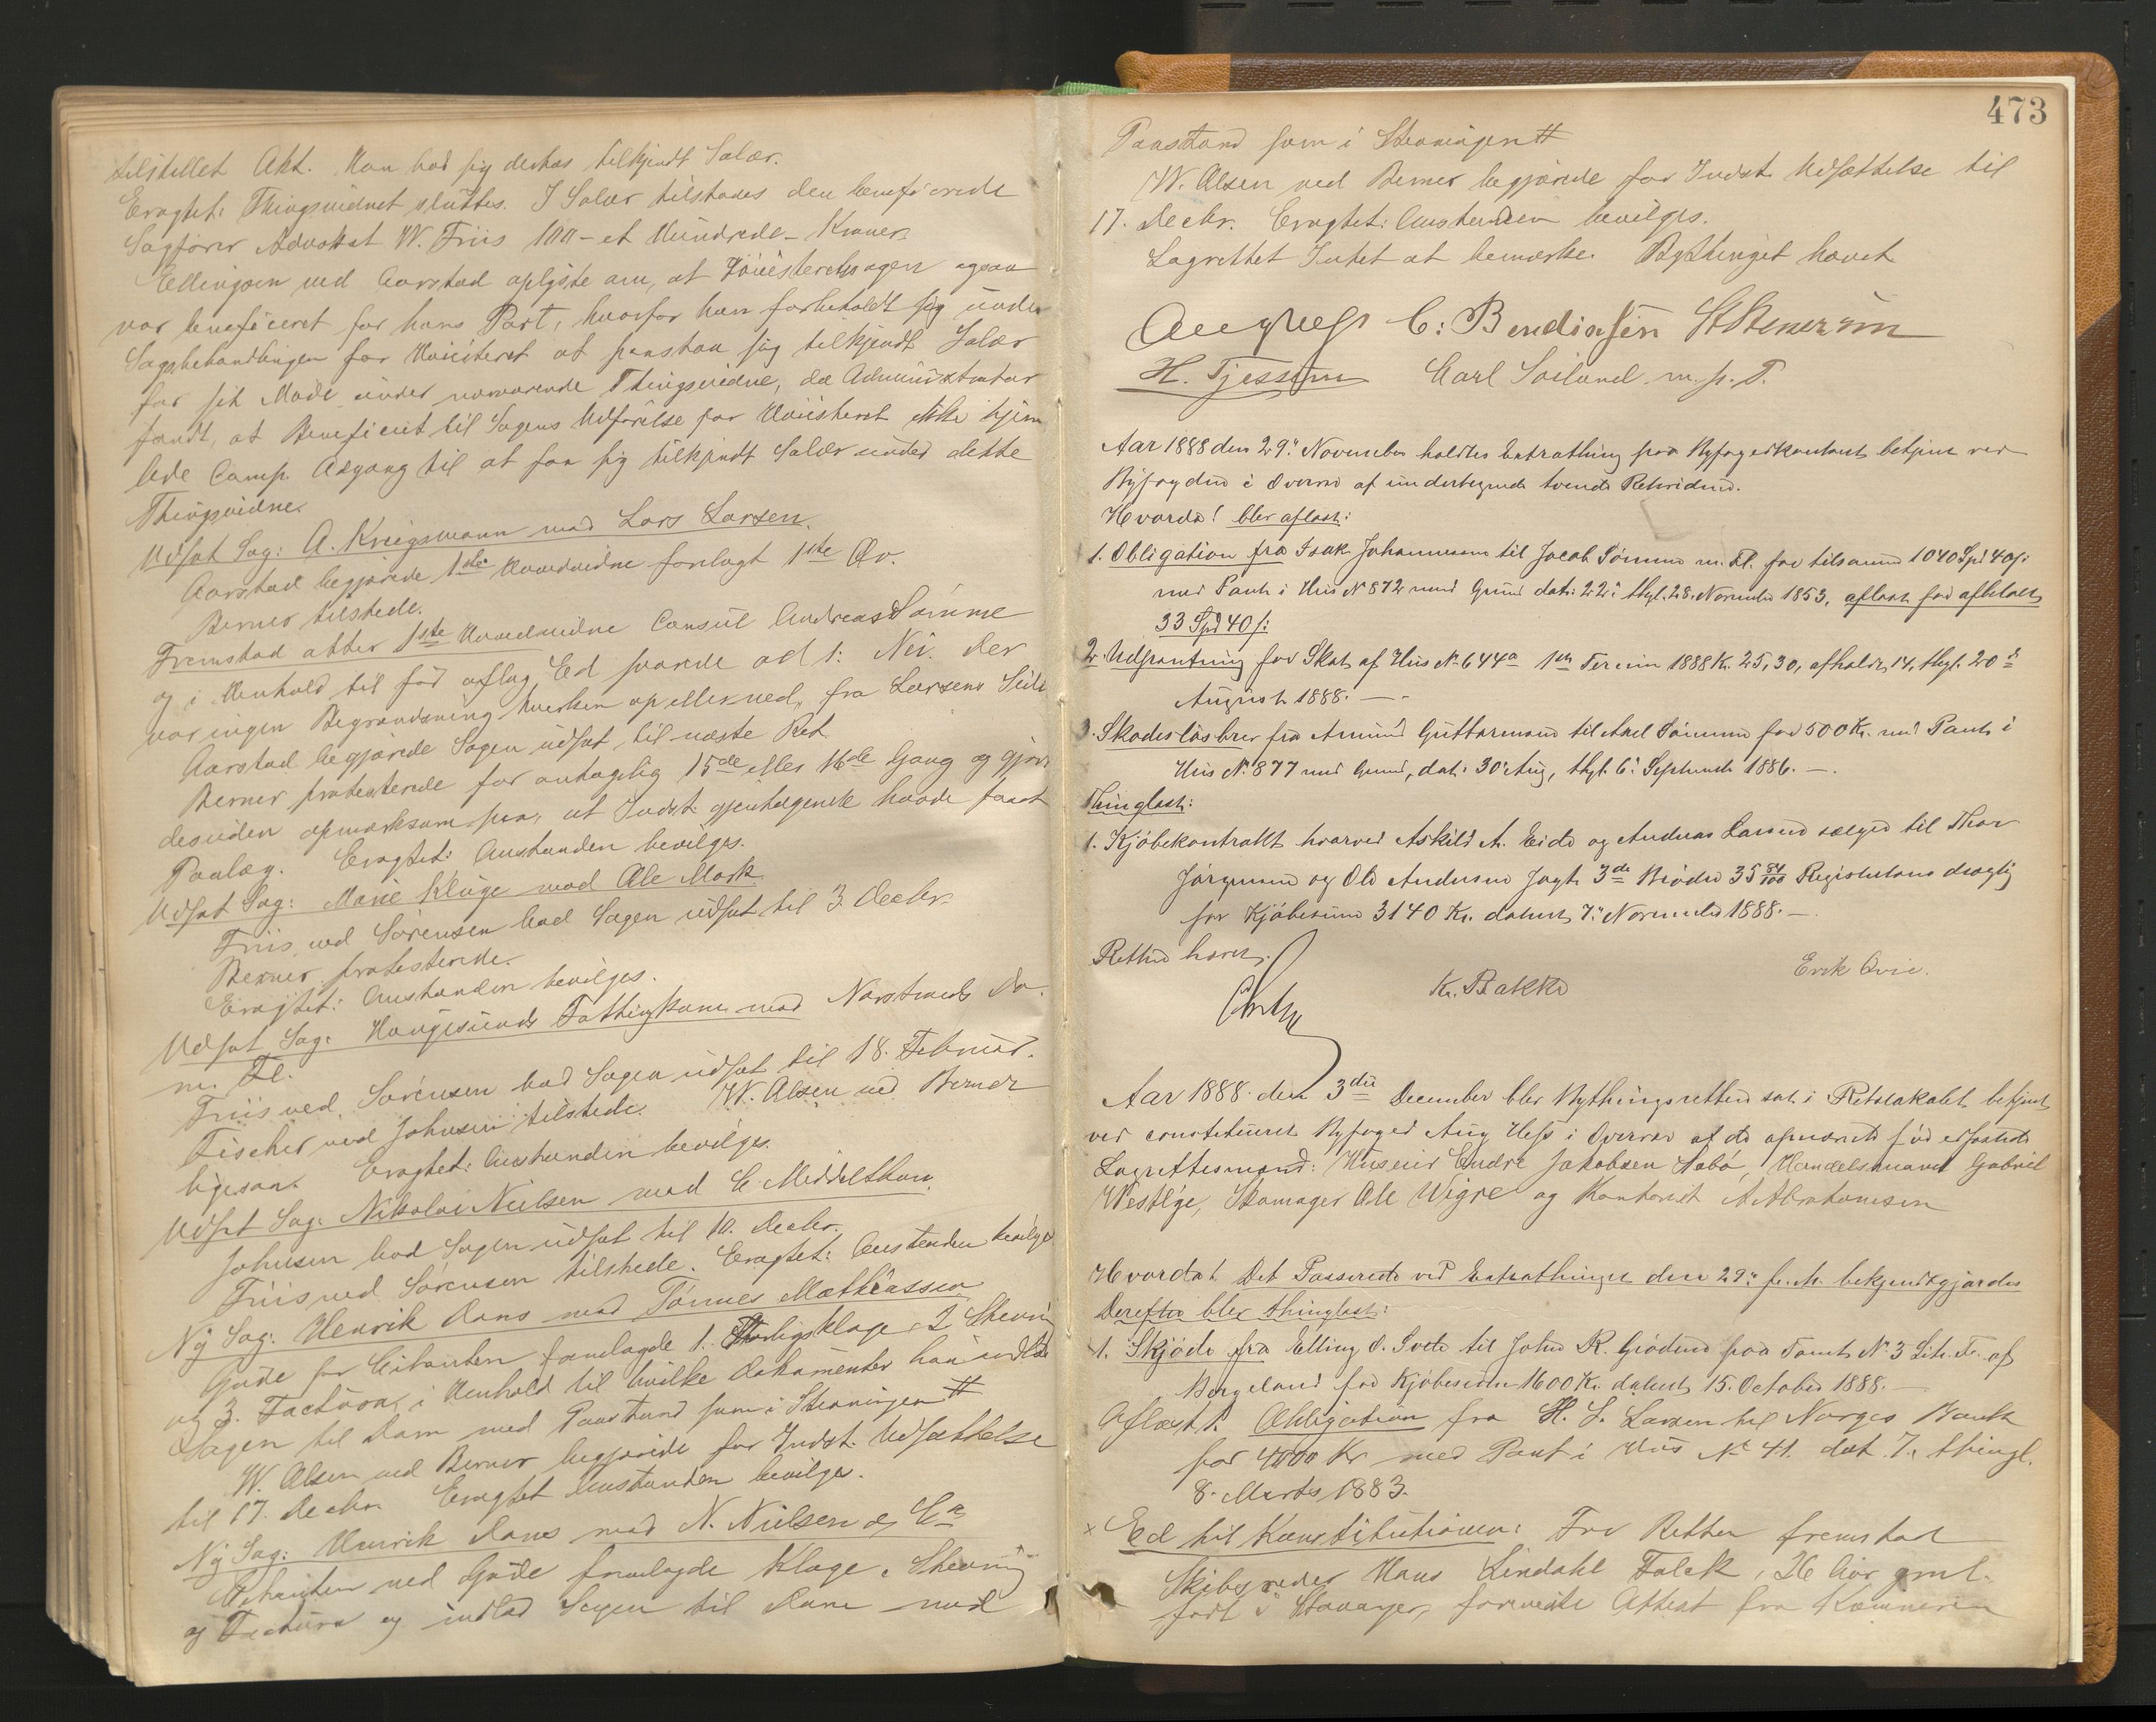 tilstillet Akt. Han bad sig derhos tilkjendt Salær.
Eragtet: Thingsvidnet sluttes. I Salær tilstodes den beneficerede
Sagfører Advokat W. Friis 100 - et Hundrede - Kroner.
Ellingsen ved Aarstad oplyste om, at Høiesteretssagen ogsaa
var beneficeret for hans Part, hvorfor han forbeholdt sig under
Sagsbehandlingen for Høiesteret at paastaa sig tilkjendt Salær
for sit Møde under nærværende Thingsvidne, da Administrator
fandt, at Beneficiet til Sagens Udførelse for Høiesteret ikke hjem
lede Comp. Adgang til at faa sig tilkjendt Salær under dette
Thingsvidne.
Udsat Sag: A. Kriegsmann mod Lars Larsen.
Aarstad begjærede 1ste Hovedvidne forelagt 1ste Qv.
Berner tilstede.
Fremstod atter 1ste Hovedvidne Consul Andreas Sømme
og i Henhold til før aflag. Ed svarede ad 1: Nei. Der
var ingen Begrændsning hverken op eller ned, fra Larsens Side
Aarstad begjærede Sagen udsat til næste Ret
Berner protesterede for antagelig 15de eller 16de Gang og gjorde
desuden opmærksom paa, at Indst. gjentagende havde faaet
Paalæg. Eragtet: Anstanden bevilges.
Udsat Sag: Marie Kluge mod Ole Mark.
Friis ved Sørensen bad Sagen udsat til 3. Decbr.
Berner protesterede.
Eragtet: Anstanden bevilges.
Udsat Sag: Haugesunds Fattigkom. mod Narstrands Do.
m. Fl.
Friis ved Sørensen bad Sagen udsat til 18. Februar.
Fischer ved Johnsen tilstede. W. Olsen ved Berner
ligesaa. Eragtet: Anstanden bevilges.
Udsat Sag: Nikolai Nielsen mod C. Middelthon.
Johnsen bad Sagen udsat til 10. Decbr.
Friis ved Sørensen tilstede. Eragtet: Anstanden bevilges
Ny Sag: Henrik Dons mod Tønnes Mathiassen
Gude for Citanten fremlagde 1. Forligsklage, 2 Stevning
og 3. Factura, i Henhold til hvilke Dokumenter han indlod
Sagen til Dom med Paastand som i Stevningen #
W. Olsen ved Berner begjærede for Indst. Udsættelse
til 17. Decbr. Eragtet Anstanden bevilges.
Ny Sag: Henrik Dons mod N. Nielsen & Co.
Citanten ved Gude fremlagde Klage, Stevning
og Factura og indlod Sagen til Dom med
473
Paastand som i Stevningen #
W. Olsen ved Berner begjærede for Indst. Udsættelse til
17. Decbr. Eragtet: Anstanden bevilges.
Lagrettet Intet at bemærke. Bythinget hævet
Aug Hess C: Bendiksen
H. Tjossem Carl Soiland m. p. P.
Aar 1888 den 29: November holdtes Extrathing paa Byfogedkontoret betjent ved
Byfogden i Overvær af undertegnede tvende Retsvidner.
Hvorda! blev aflæst:
1. Obligation fra Isak Johannesen til Jacob Sømme m. Fl. for tilsammen 1040 Spd 40 s:
med Pant i Hus No 872 med Grund dat: 22: thgl. 28. November 1853, aflæst for afbetalt
33 Spd 40 s:
2. Udpantning for Skat af Hus No 644a 1ste Termin 1888 K. 25,30, afholdt 14, thgl. 20:
August 1888. —
3. Skadesløsbrev fra Amund Guttormsen til Axel Sømme for 500 Kr. med Pant i
Hus No 877 med Grund, dat: 30 Aug, thgl. 6: September 1886. —
Thinglæst:
1. Kjøbekontrakt hvorved Askild A. Eide og Andreas Larsen sælger til Thor
Jørgensen og Ole Andersen Jagt 3de Brødre 35 Registertons drægtig
for Kjøbesum 3140 Kr. dateret 7: November 1888. —
Retten hævet.
K. Bakke
Erik Qvie.
Aar 1888 den 3die December blev Bythingsretten sat i Retslokalet betjent
ved constitueret Byfoged Aug Hess i Overvær af de opnævnte før edfæstede
Lagrettesmænd: Huseier Endre Jakobsen Aabø, Handelsmand Gabriel
Westlye, Skomager Ole Wigre og Kontorist A. Abrahamsen
Hvorda! Det Passerede ved Extrathinget den 29: f. M. bekjendtgjordes
Derefter blev thinglæst:
1. Skjøde fra Elling O. Svele til John R. Grødem paa Tomt No 3 Lit. F. af
Bergeland for Kjøbesum 1600 Kr. dateret 15. October 1888. —
Aflæst 1. Obligation fra H. L. Larsen til Norges Bank
for 4000 Kr med Pant i Hus No 41. dat. 7, thingl.
8. Marts 1883.
x Ed til Konstitutionen: For Retten fremstod
Skibsreder Hans Lindahl Falck, 26 Aar gml.
født i Stavanger, foreviste Attest fra Kæmneren